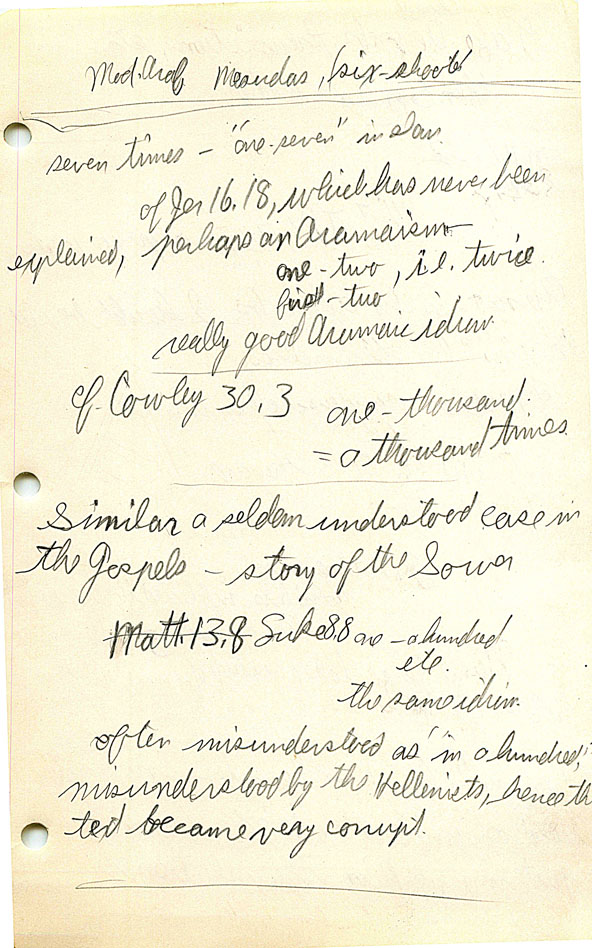 Mod. Arab. , six-shooter
seven times – "one-seven" in Dan.
cf Jer 16.18, which has never been
explained, perhaps an Aramaism
one-two, i.e. twice.
first-two
really good Aramaic idiom
cf. Cowley 30.3 one-thousand
= a thousand times
Similar a seldom understood case in
the Gospels – story of the Sower
Matt. 13.8 Luke 8.8 one-a hundred
etc.
the same idiom.
often misunderstood as "in a hundred,"
misunderstood by the Hellenists, hence th
text became very corrupt.